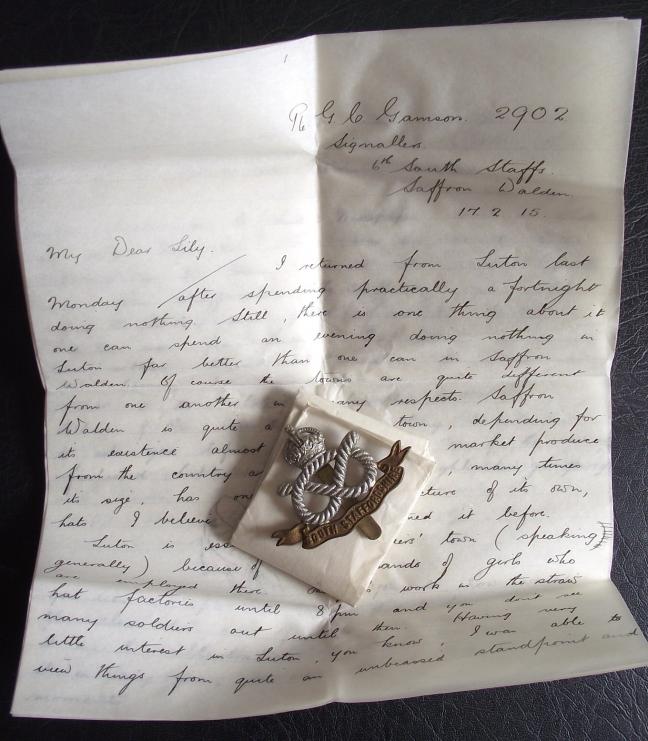 1
Pte G. C Gamson. 2902
Signallers.
6th South Staffs.
Saffron Walden.
17 2 15.
My Dear Lily.
I returned from Luton last
Monday after spending practically a fortnight
doing nothing. Still, there is one thing about it
one can spend an evening doing nothing in
Luton far better than one can in Saffron
Walden. Of course the towns are quite different
from one another in many respects. Saffron
Walden is quite a town, depending for
its existence almost market produce
from the country a many times
its size, has one of its own,
hats I believe it before.
Luton is town (speaking
generally) because of of girls who
are employed there. work in the straw
hat factories until 8 pm and you don't see
many soldiers out until then. Having very
little interest in Luton, you know, I was able to
view things from quite an unbiassed standpoint and
SOUTH STAFFORDSHIRE